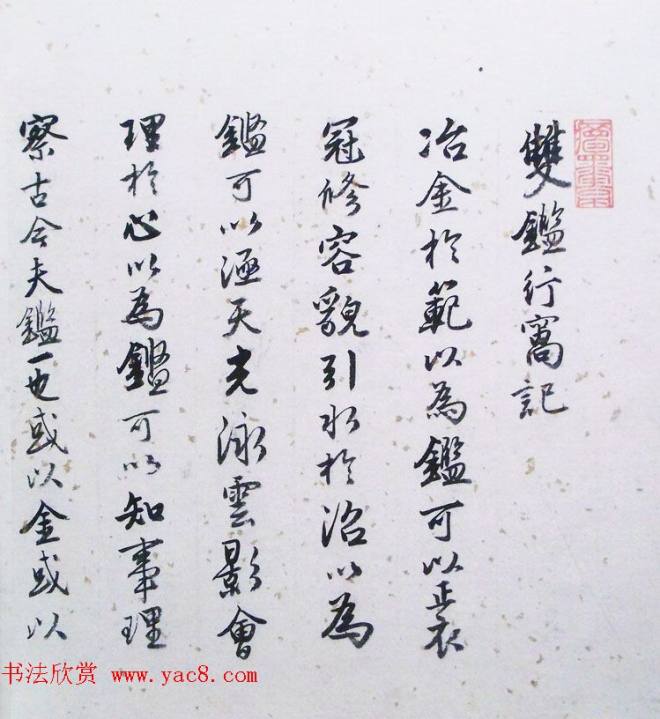 雙鑑行窩記
冶金於範以為鑑可以正衣
冠修容貌引水於沼以為
鑑可以涵天光泳雲影會
理於心以為鑑可以知事理
察古今夫鑑一也或以金或以
书法欣赏 www.yac8.com